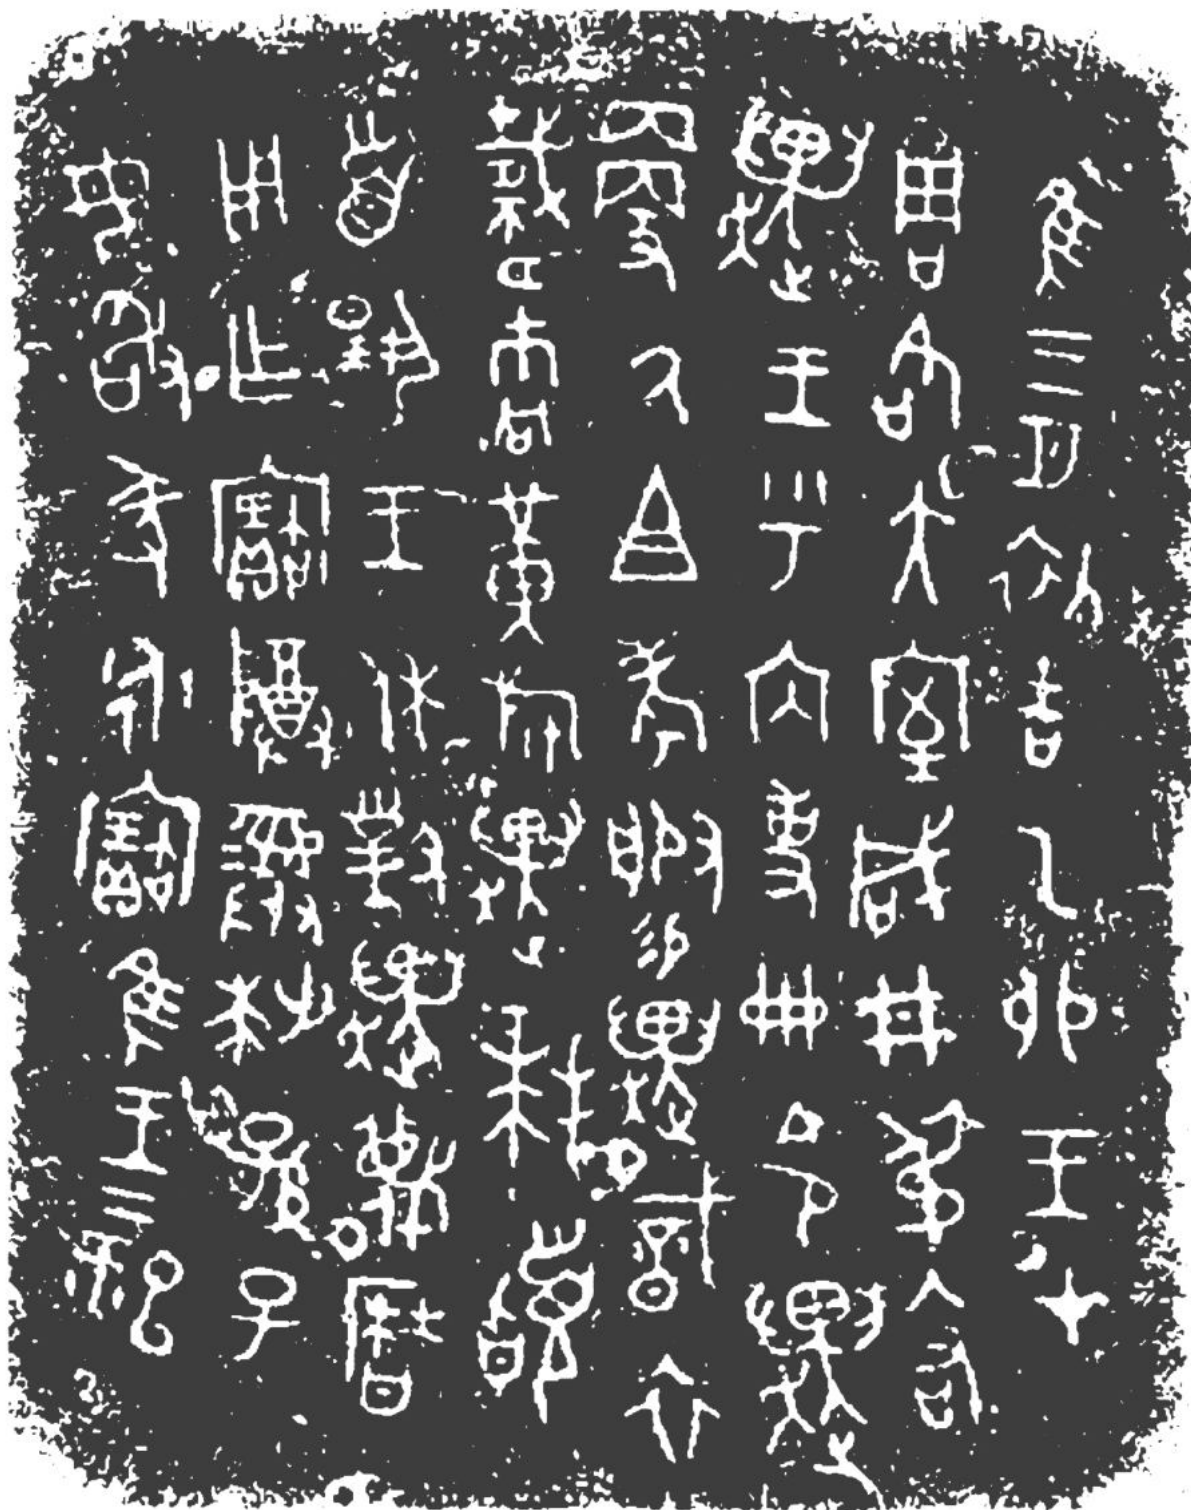 隹三月初吉乙卯王才
周各大室咸井叔入右
趩王乎內史冊令趩
更氒且考服易趩戠衣
載巿冋黃旂趩拜𩒨
首揚王休對趩蔑曆
用乍寶尊彝枼孫子
毋敢墜永寶隹王二祀